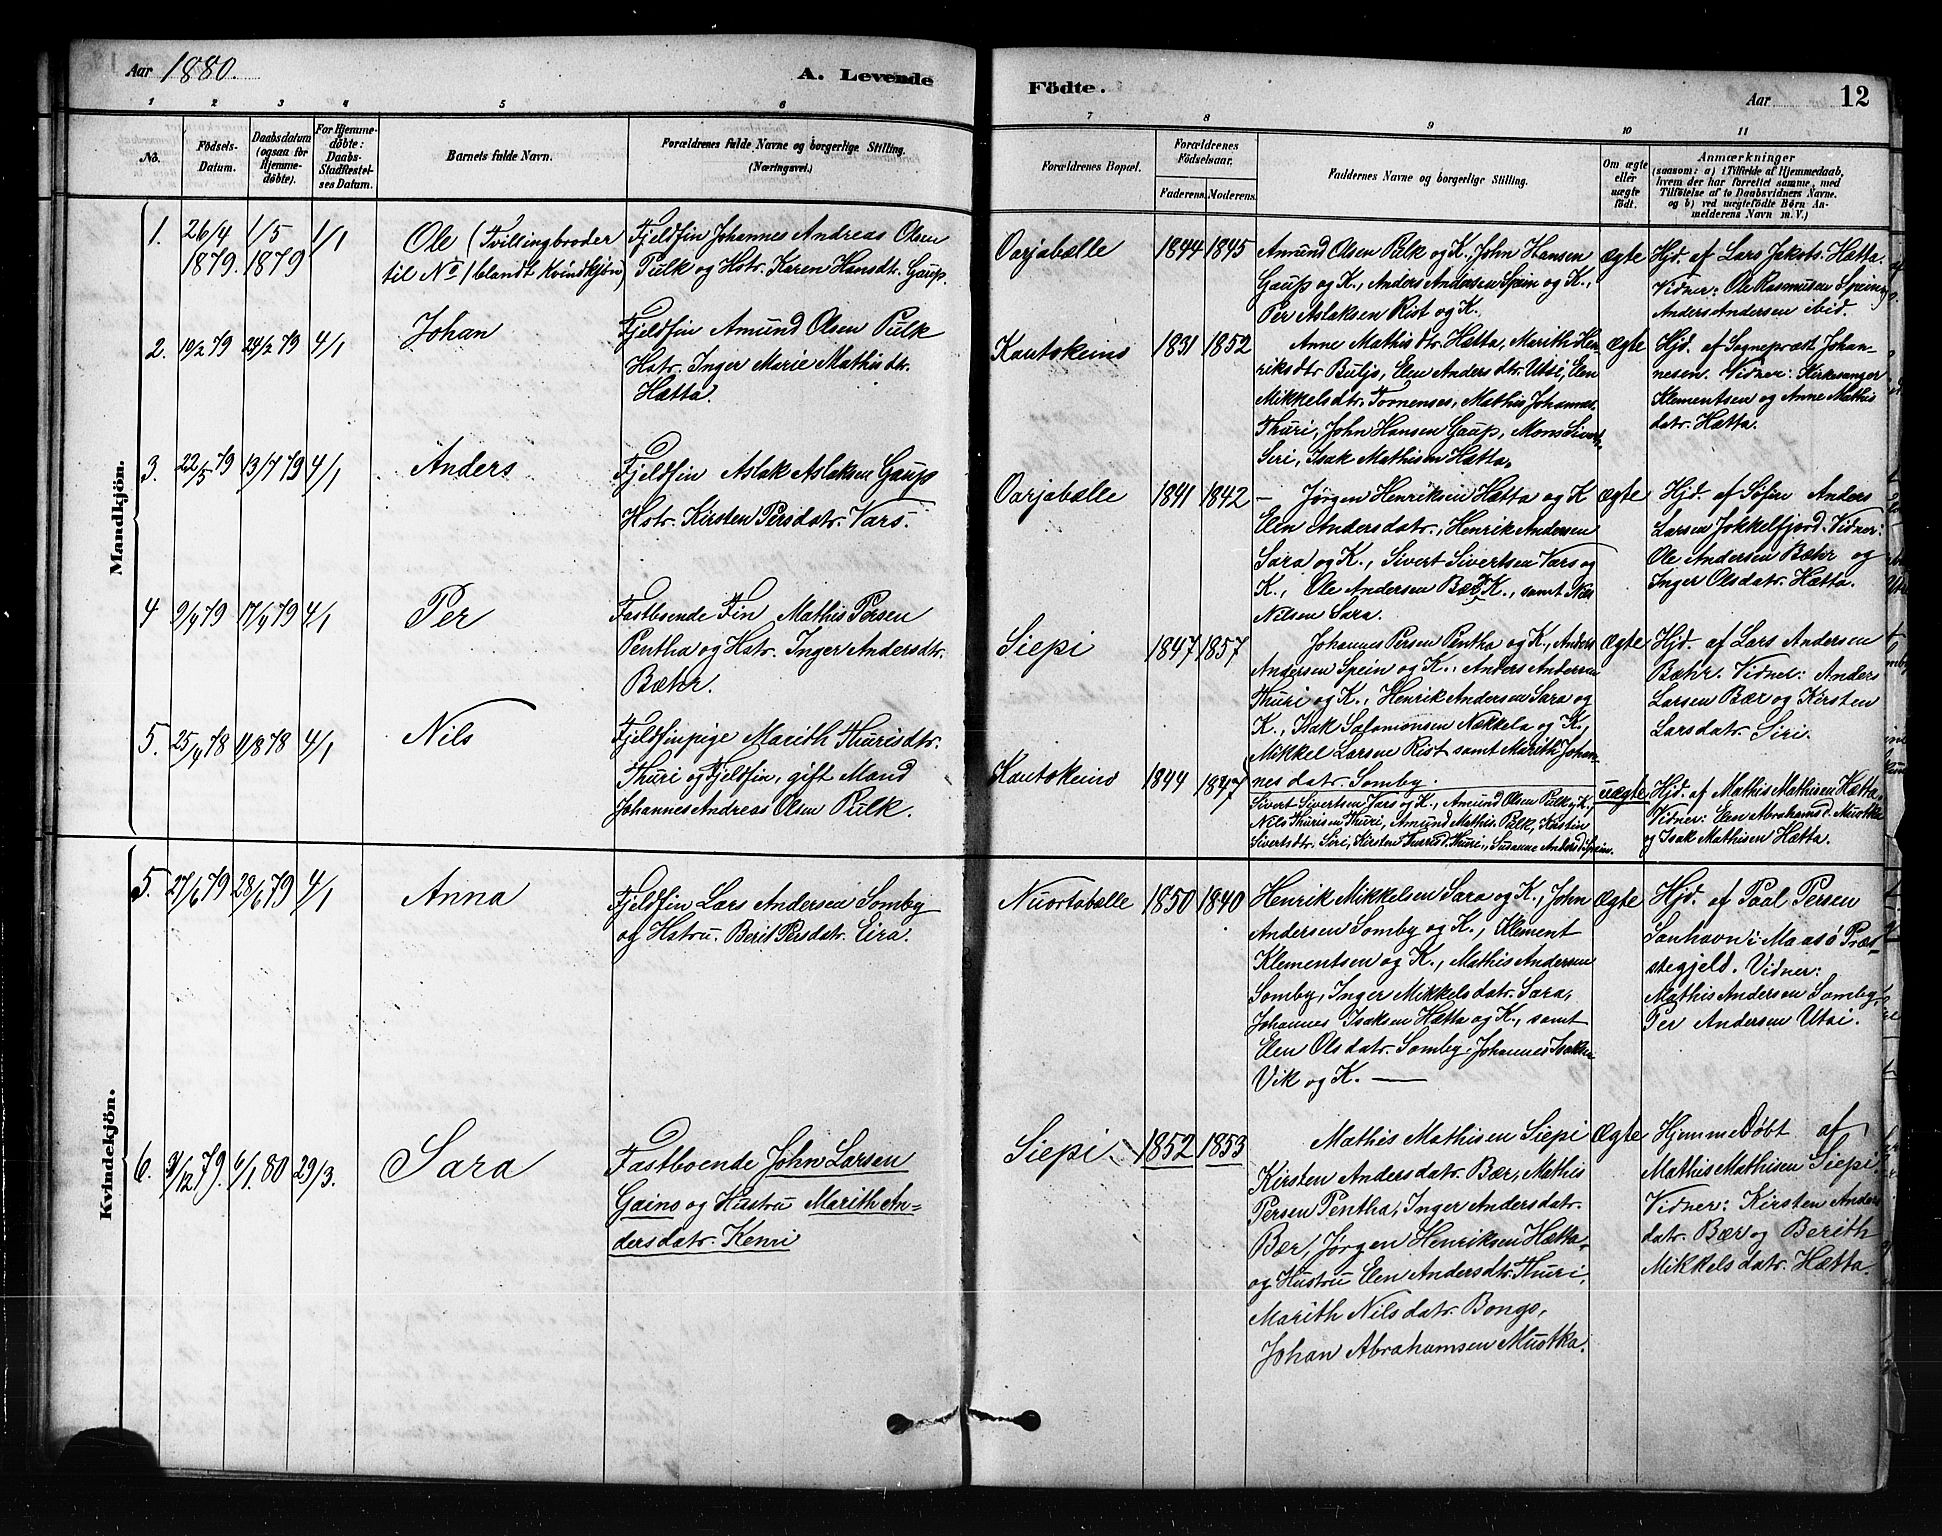 Aar 1880.
A. Levende
Födte.
Aar
12
1 2 3 4 5 6 7 8 9 10 11
No.
Födsels-
Datum.
Daabsdatum
(ogsaa for
Hjemme-
döbte).
For Hjemme-
döbte:
Daabs-
Stadfæstel-
ses Datum.
Barnets fulde Navn.
Forældrenes fulde Navne og borgerlige Stilling.
(Næringsvei.)
Forældrenes Bopæl.
Forældrenes
Födselsaar.
Faderens.
Moderens.
Faddernes Navne og borgerlige Stilling.
Om ægte
eller
uægte
födt.
Anmærkninger
(saasom: a) i Tilfælde af Hjemmedaab,
hvem der har forrettet samme, med
Tilföielse af to Daabsvidners Navne,
og b) ved uægtefödte Börn An-
melderens Navn m. V.)
Mandkjön.
1. 26/4 1879. 1/5 1879 1/1
Ole (Tvillingbroder
til No (blandt Kvindkjøn)
Fjeldfin Johannes Andreas Olsen
Pulk og Hstr. Karen Hansdt. Gaup.
Oarjabælle 1844 1845
Amund Olsen Pulk og K., John Hansen
Gaup og K., Anders Andersen Spein og K.,
Per Aslaksen Rist og K.
Ægte
Hjd. af Lars Jakobs. Hætta.
Vidner: Ole Rasmusen Spein og
Anders Andersen ibid.
2. 19/2 79 24/2 79 4/1
Johan
Fjeldfin Amund Olsen Pulk
Hstr. Inger Marie Mathisdtr.
Hætta.
Kautokeino 1831 1852
Anne Mathisdtr Hætta, Marith Hen-
riksdtr Buljo, Elen Andersdtr. Utsi, Elen
Mikkelsdtr. Tornenses, Mathis Johannes.
Thuri, John Hansen Gaup, Mons Sivert.
Siri, Isak Mathisen Hætta.
Ægte
Hjd. af Sognepræst Johan-
nesen. Vidner: Kirkesanger
Klementsen og Anne Mathis
datr. Hætta.
3. 22/5 79 13/7 79 4/1
Anders
Fjeldfin Aslak Aslaksen Gaup
Hstr. Kirsten Persdatr. Vars.
Oarjabælle 1841 1842
— Jørgen Henriksen Hætta og K
Elen Andersdatr., Henrik Andersen
Sara og K., Sivert Sivertsen Vars og
K., Ole Andersen Bær og K., samt Nils
Nilsen Sara.
Ægte
Hjd. af Søfin Anders
Larsen Jokkelfjord. Vidner:
Ole Andersen Bæhr og
Inger Olsdatr. Hætta.
4 9/9 79 17/9 79 4/1
Per
Fastboende Fin Mathis Persen
Pentha og Hstr. Inger Andersdtr.
Bæhr.
Siepi 1847 1857
Johannes Persen Pentha og K., Anders
Andersen Spein og K., Anders Andersen
Thuri og K., Henrik Andersen Sara og
K., Isak Salomonsen Nækkela og K.,
Mikkel Larsen Rist samt Marith Johan-
nesdatr. Somby.
Ægte
Hjd. af Lars Andersen
Bæhr. Vidner: Anders
Larsen Bær og Kirsten
Larsdatr. Siri.
5. 25/4 78 4/8 78 4/1
Nils
Fjeldfinpige Marith Thurisdtr.
Thuri og Fjeldfin, gift Mand
Johannes Andreas Olsen Pulk.
Kautokeino 1844 1847
Sivert Sivertsen Vars og K., Amund Olsen Pulk og K.,
Nils Thurisen Thuri, Amund Mathis. Pulk, Kirstin
Sivertsdtr. Siri, Kirsten Thurisd. Thuri., Susanne Andersd. Spein.
uægte
Hjd. af Mathis Mathisen Hætta,
Vidner: Elen Abrahamsd. Muotka
og Isak Mathisen Hætta.
Kvindekjön.
5. 27/6 79 28/6 79 4/1
Anna
Fjeldfin Lars Andersen Somby
og Hstru. Berit Persdatr. Eira.
Nuortabælle 1850 1840
Henrik Mikkelsen Sara og K., John
Andersen Somby og K., Klement
Klementsen og K., Mathis Andersen
Somby, Inger Mikkelsdatr. Sara,
Johannes Isaksen Hætta og K., samt
Elen Olsdatr. Somby, Johannes Isaksen
Vik og K. —
Ægte
Hjd. af Paal Persen
Sanhavn i Maasø Præs-
stegjeld. Vidner:
Mathis Andersen Somby,
Per Andersen Utsi.
6. 9/12 79. 6/1 80 29/3.
Sara
Fastboende John Larsen
Gaino og Hustru Marith An-
dersdatr. Kenri
Siepi. 1852 1853
Mathis Mathisen Siepi
Kirsten Andersdatr. Bær, Mathis
Persen Pentha, Inger Andersdatr.
Bær, Jørgen Henriksen Hætta
og Hustru Elen Andersdtr. Thuri,
Marith Nilsdatr. Bongo,
Johan Abrahamsen Muotka.
Ægte
Hjemmedøbt af
Mathis Mathisen Siepi.
Vidner: Kirsten Anders
datr. Bær og Berith
Mikkelsdatr. Hætta.